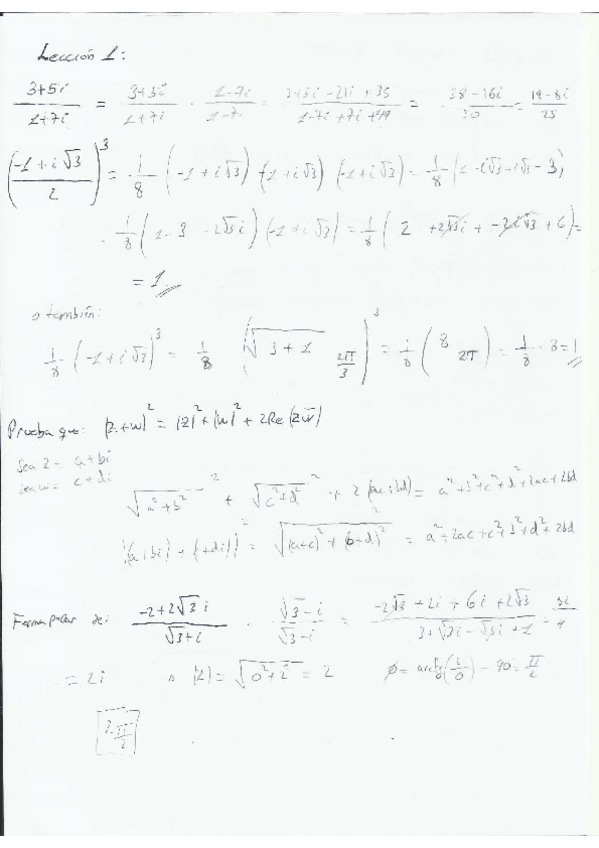 Lección 1:
3+5i / 1+7i = 3+5i / 1+7i · 1-7i / 1-7i = 3+5i-21i+35 / 1-7i+7i+49 = 38-16i / 50 = 19-8i / 25
((-1+i√3) / 2)^3 = 1/8 (-1+i√3) (-1+i√3) (-1+i√3) = 1/8 (1-i√3-i√3-3)
1/8 (1-3-2√3i) (-1+i√3) = 1/8 (2+2√3i+-2i√3+6) =
= 1
o también:
1/8 (-1+i√3)^3 = 1/8 (√3+1 2π/3)^3 = 1/8 (8 2π) = 1/8 · 8 = 1
Prueba que: |z+w|^2 = |z|^2+|w|^2+2Re(zw̅)
Sea z = a+bi
sea w = c+di
√a^2+b^2 ^2 + √c^2+d^2 ^2 + 2(ac+bd) = a^2+b^2+c^2+d^2+2ac+2bd
|(a+bi)+(c+di)|^2 = √(a+c)^2+(b+d)^2 ^2 = a^2+2ac+c^2+b^2+d^2+2bd
Forma polar de: -2+2√3i / √3+i · √3-i / √3-i = -2√3+2i+6i+2√3 / 3+√3i-√3i+1 = 8i / 4
= 2i |z| = √0^2+2^2 = 2 φ = arctg(2/0) = 90 = π/2
2 π/2